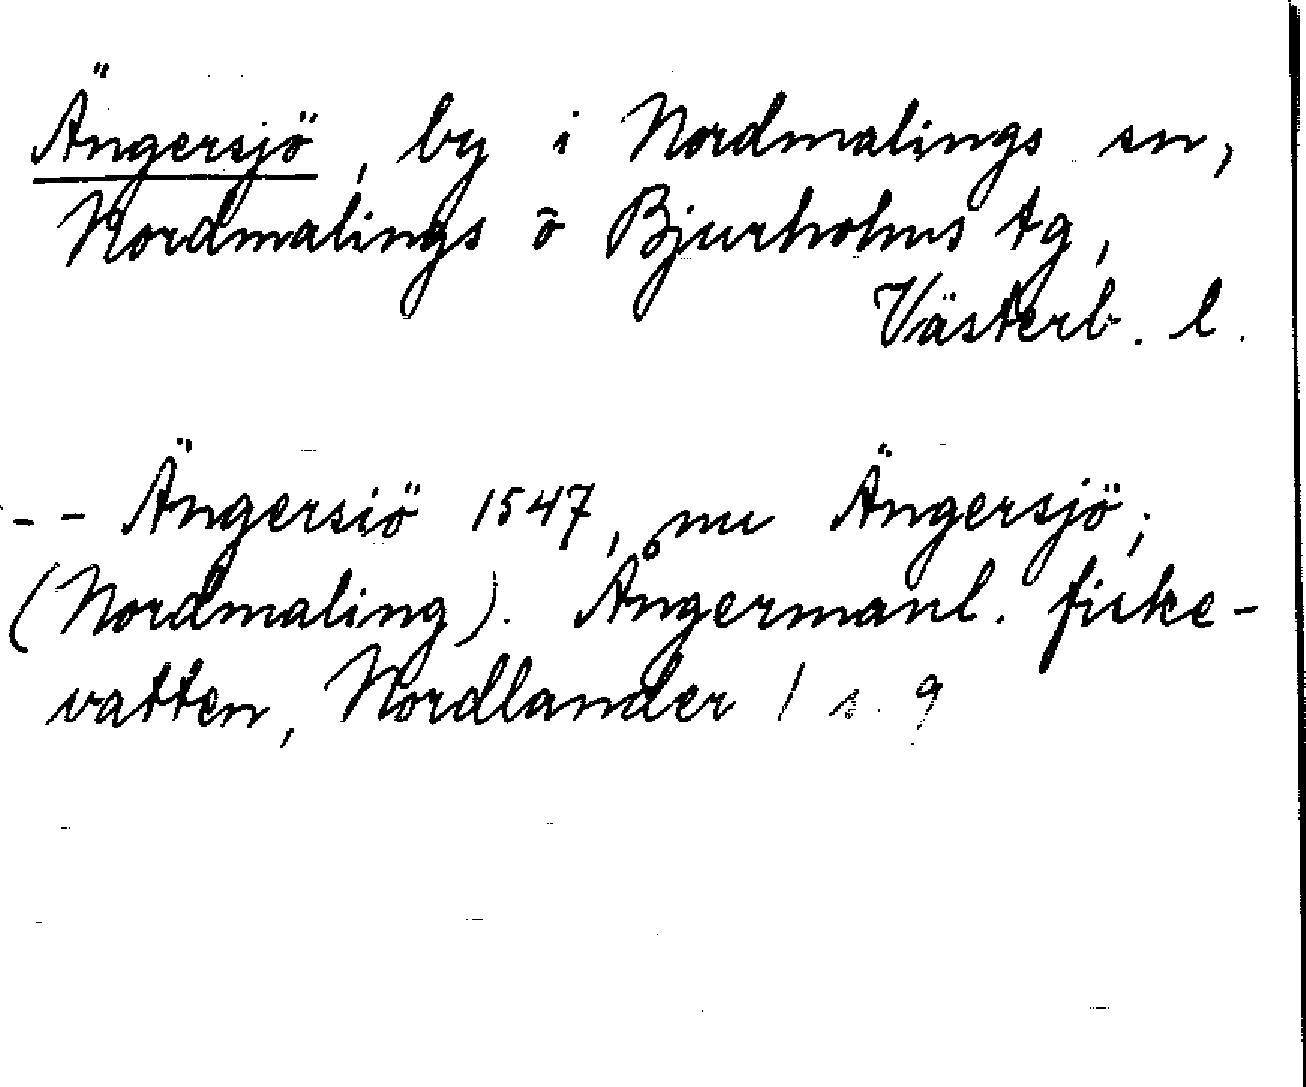 Ängersjö, by i Nordmalings sn,
Nordmalings o Bjurholms tg,
Västerb. l.
- - Ängersiö 1547, nu Ängersjö;
(Nordmaling). Ångermanl. fiske-
vatten, Nordlander 1 s. 9